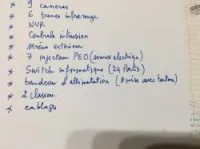 * 9 cameras
* 6 barres infrarouge
* NVR
* Centrale intrusion
* sirène extérieur
* 7 injecteur PEO (armoire électrique)
* Switch informatique (24 Ports)
* bandeau d'alimentation (8 prise avec bouton)
* 2 Claviers
* cablage